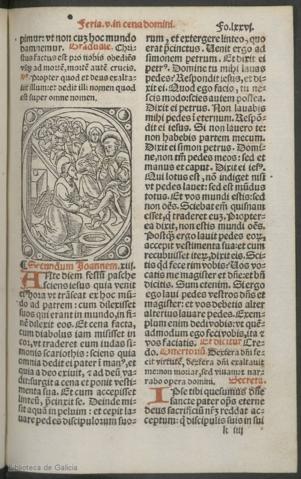 Feria.v.in cena domini.
Fo.lxxvj.
pimur: vt non cuz hoc mundo
damnemur. Graduale. Chri
stus factus est pro nobis obediēs
vsq̧ ad mortē, mortē autē crucis.
℣. Propter quod et deus exalta
uit illum: et dedit illi nomen quod
est super omne nomen.
¶ Secundum Joannem.xiij.
ANte diem festū pasche
sciens iesus quia venit
ei⁹ hora vt trāseat ex hoc mū
do ad patrem: cum dilexisset
suos qui erant in mundo, in fi
nē dilexit eos. Et cena facta,
cum diabolus iam misisset in
cor, vt traderet eum iudas si
monis scariothis: sciens quia
omnia dedit ei pater ī man⁹, et
quia a deo exiuit, ⁊ ad deū va
dit: surgit a cena et ponit vesti
menta sua. Et cum accepisset
linteū, p̄cinxit se. Deinde mi
sit aquā in peluim: et cepit la
uare pedes discipulorum suo⁊
rum, et extergere linteo, quo
erat p̄cinctus. Uenit ergo ad
simonem petrum. Et dixit ei
petr⁹. Domine tu mihi lauas
pedes? Respondit iesus, et di
xit ei. Quod ego facio, tu ne
scis modo: scies autem postea.
Dixit ei petrus. Non lauabis
mihi pedes ī eternum. Respō
dit ei iesus. Si non lauero te:
non habebis partem mecum.
Dixit ei simon petrus. Domi
ne, non tm̄ pedes meos: sed et
manus et caput. Dicit ei ies⁹.
Qui lotus est, nō indiget nisi
vt pedes lauet: sed est mūdus
totus. Et vos mundi estis: sed
non oēs. Sciebat em̄ quisnam
esset, q̄ traderet euz. Propter
ea dixit, non estis mundi oēs.
Postq̄ ergo lauit pedes eoꝝ,
accepit vestimenta sua: et cum
recubuisset iteꝝ, dixit eis. Sci
tis qd̄ fecerim vobis? Uos vo
catis me magister et dn̄e: et bn̄
dicitis. Sum etenim. Si ergo
ego laui pedes vestros dn̄s et
magister: et vos debetis alter
alterius lauare pedes. Exem
plum enim dedi vobis: vt quē
admodum ego feci vobis, ita ⁊
vos faciatis. Et dicitur Cre
do. Offertoriū. Dextera dn̄i fe
cit virtutē, dextera dn̄i exaltauit
me: non moriar, sed viuam et nar
rabo opera domini. Secreta.
IPse tibi quesumus dn̄e
sancte pater op̄s eterne
deus sacrificiū nr̄z reddat ac
ceptum: q̄ discipulis suis in sui
k iiij
Biblioteca de Galicia